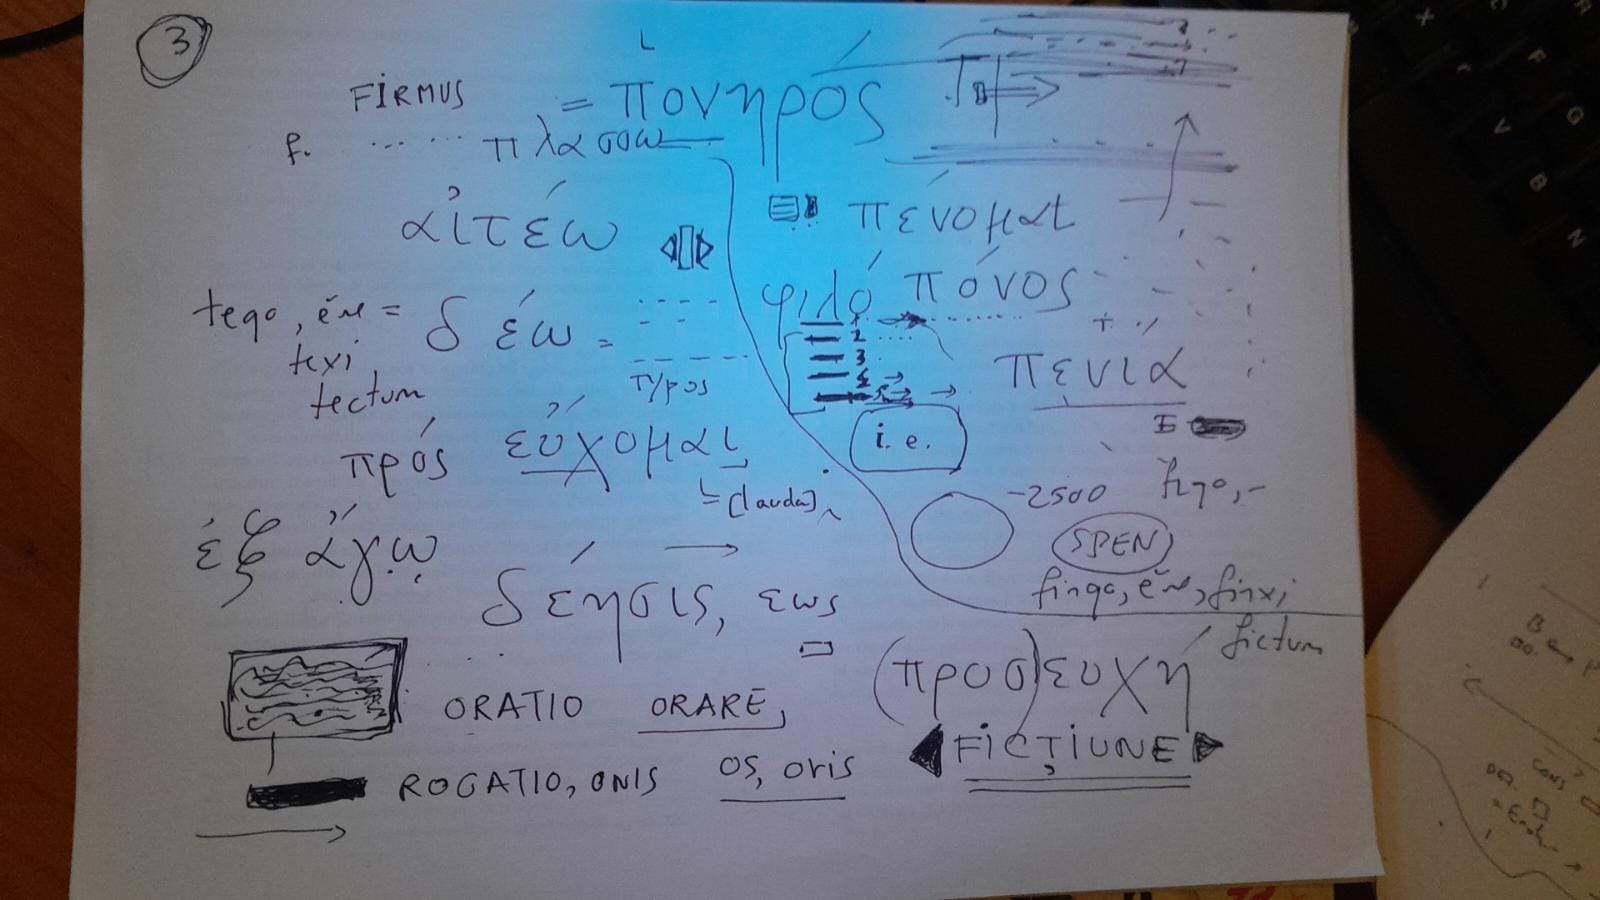 3
FIRMUS = πονηρός
f. ..... πλασσω
αἰτέω
πένομαι
φιλό πόνος
tego, ĕre = δέω =
texi
tectum
typos
1
2
3
4
5
πενία
i. e.
πρός εὔχομαι
[lauda]
-2500 figo, -
SPEN
fingo, ĕre, finxi,
fictum
ἐξ ἄγω
δέησις, εως
(προσ)ευχή
ORATIO ORARE,
FICȚIUNE
ROGATIO, ONIS os, oris